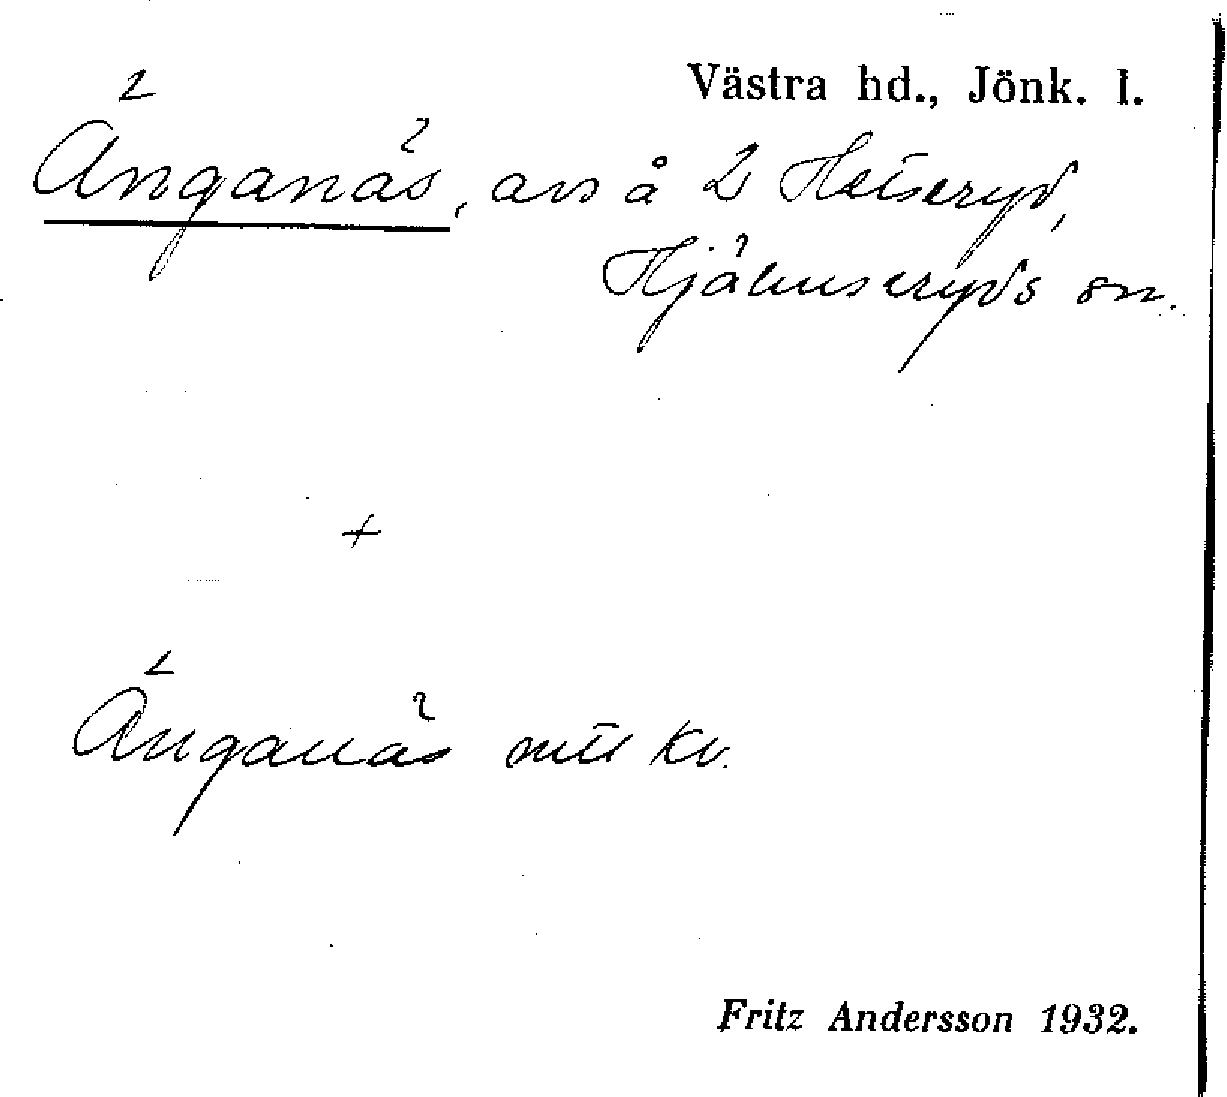 Västra hd., Jönk. l.
Änganäs, avs å 2 Hatseryd,
Hjälmseryds sn.
+
Änganäs mtl kv.
Fritz Andersson 1932.